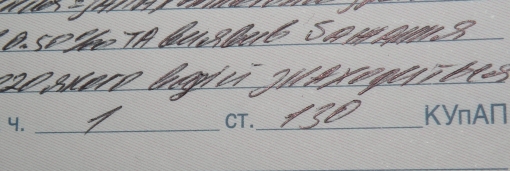 0.50‰ та виявив бажання
якого водій знаходиться
ч. 1 ст. 130 КУпАП